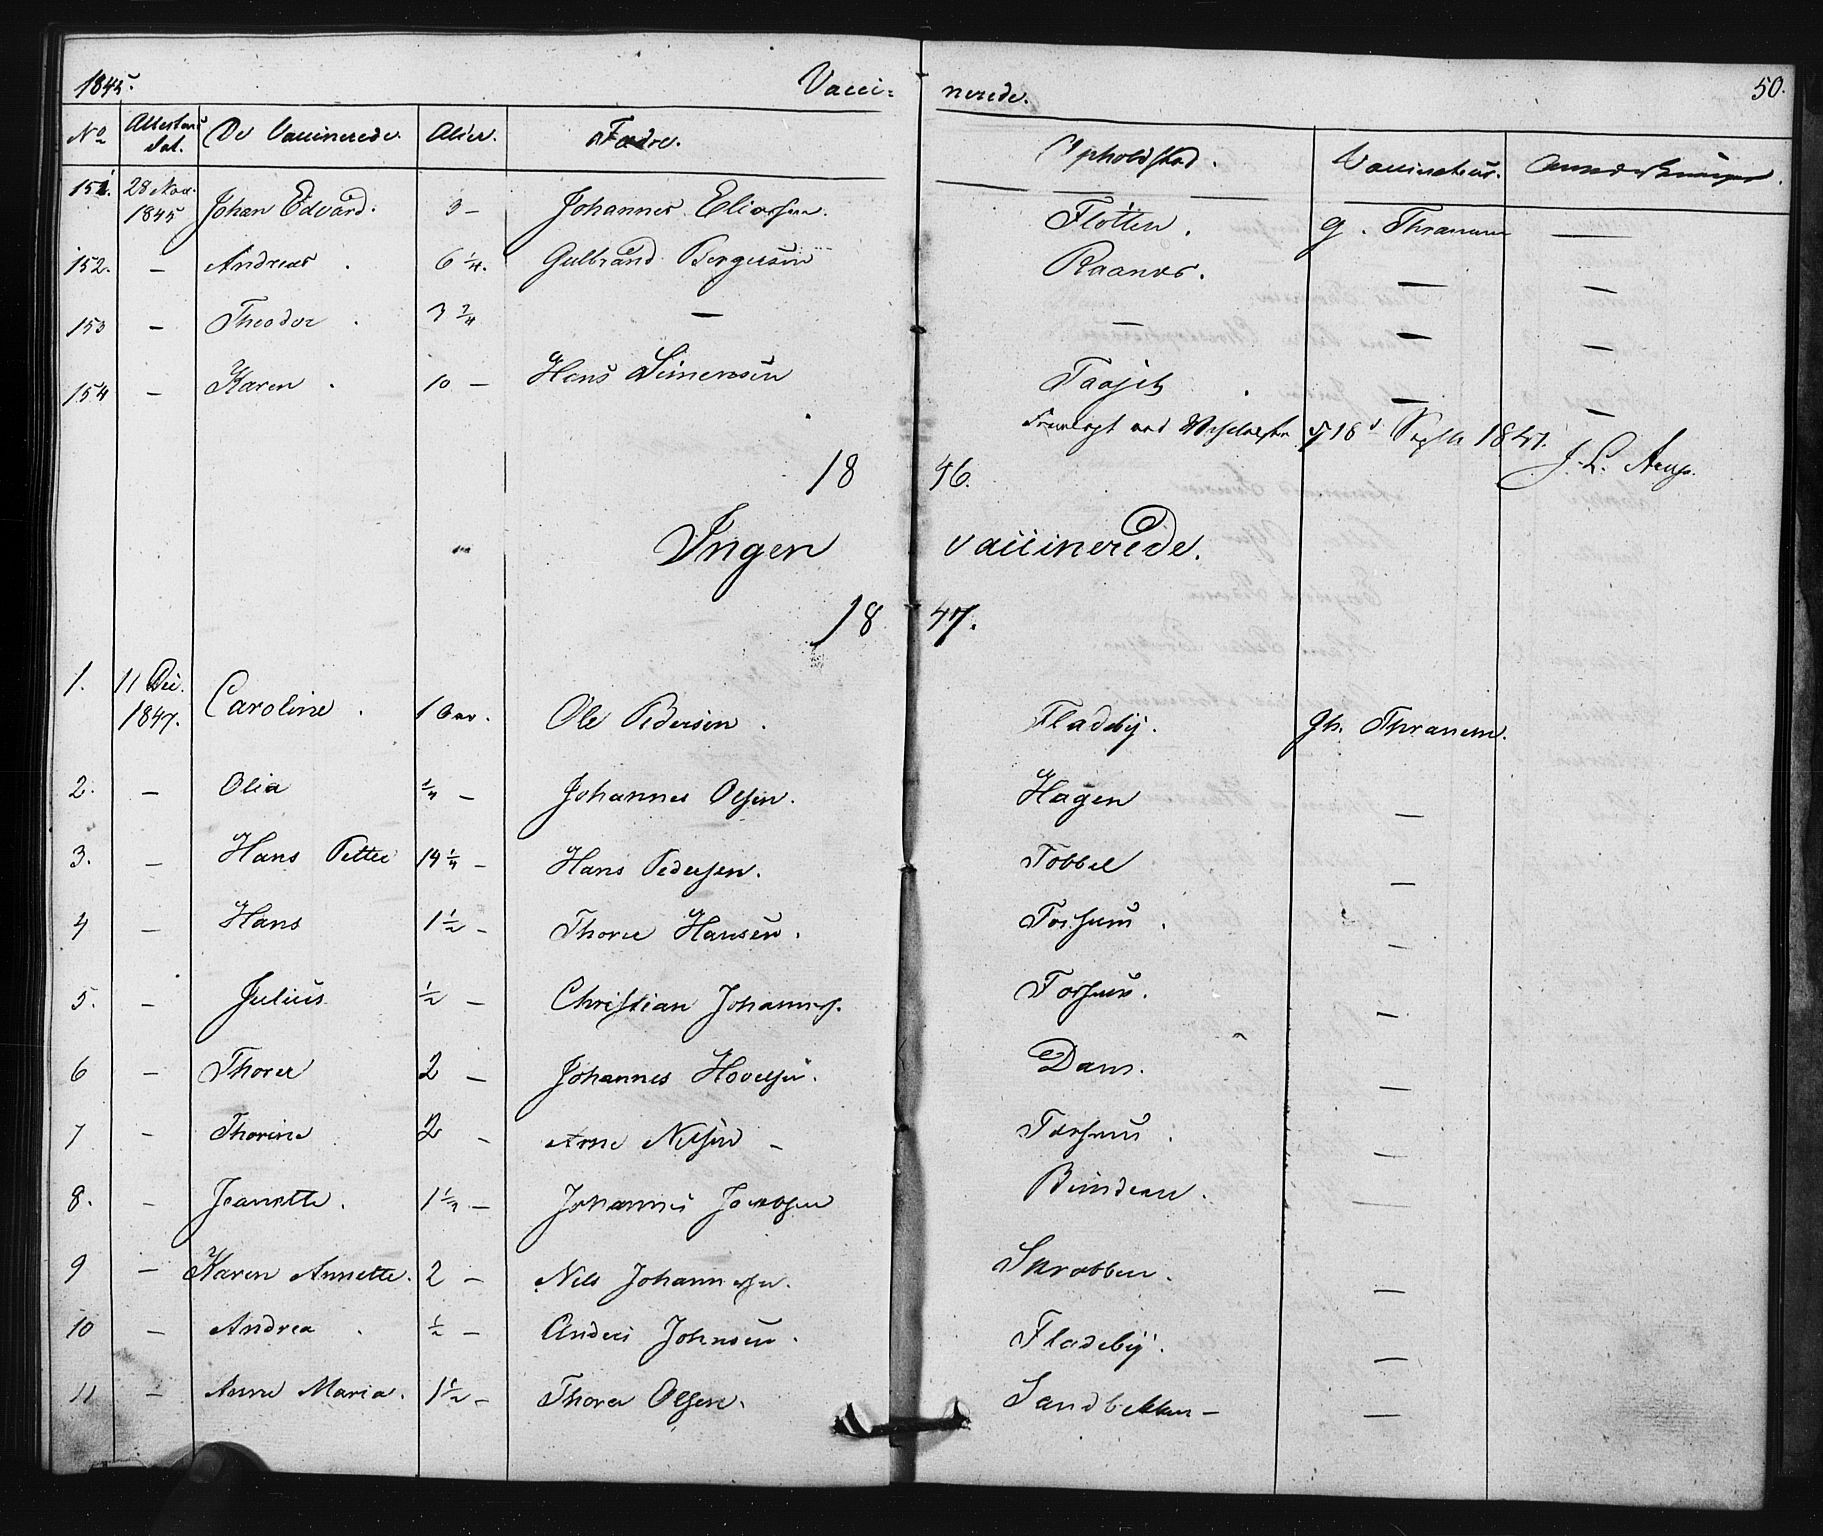 1845. Vacci= nerede. 50.
No Attestens Dat. De Vaccinerede. Alder. Fædre. Opholdsted. Vaccinateur. Anmærkninger.
151. 28 Nov. 1845 Johan Edvard. 3 — Johannes Eliassen. Flötten. G. Thranum —
152. — Andreas. 6 1/4. Gulbrand Bergersen Raanaas. — —
153 — Theodor. 3 3/4 — — — —
154 — Karen. 10 — Hans Simensen Taajet — —
Fremlagt ved 18 Septbr 1847.
J. L. Arup.
18 46.
Ingen vaccinerede.
18 47.
1. 11 Dec. 1847. Caroline. 1 Ole Pedersen. Fladeby. Gh. Thranum.
2. — Olia 1/4 — Johannes Olsen. Hagen —
3. — Hans Petter 14 1/4 — Hans Pedersen. Tobbel —
4 — Hans 1 1/2 — Thorer Hansen. Forsum. —
5. — Julius 1/2 — Christian Johannes. Forsum. —
6 — Thorer 2 — Johannes Hovelsen. Dam. —
7 — Thorine 2 — Arne Nilsen — Forsum. —
8. — Jeanette. 1 1/2 — Johannes Jacobsen —
9 — Karen Annette. 2 — Nils Johannesen. Skrabben. —
10 — Andrea. 1/2 — Anders Johnsen. Fladeby. —
11 — Anne Maria. 1 1/2 — Thorer Olsen. Sandbekken — —